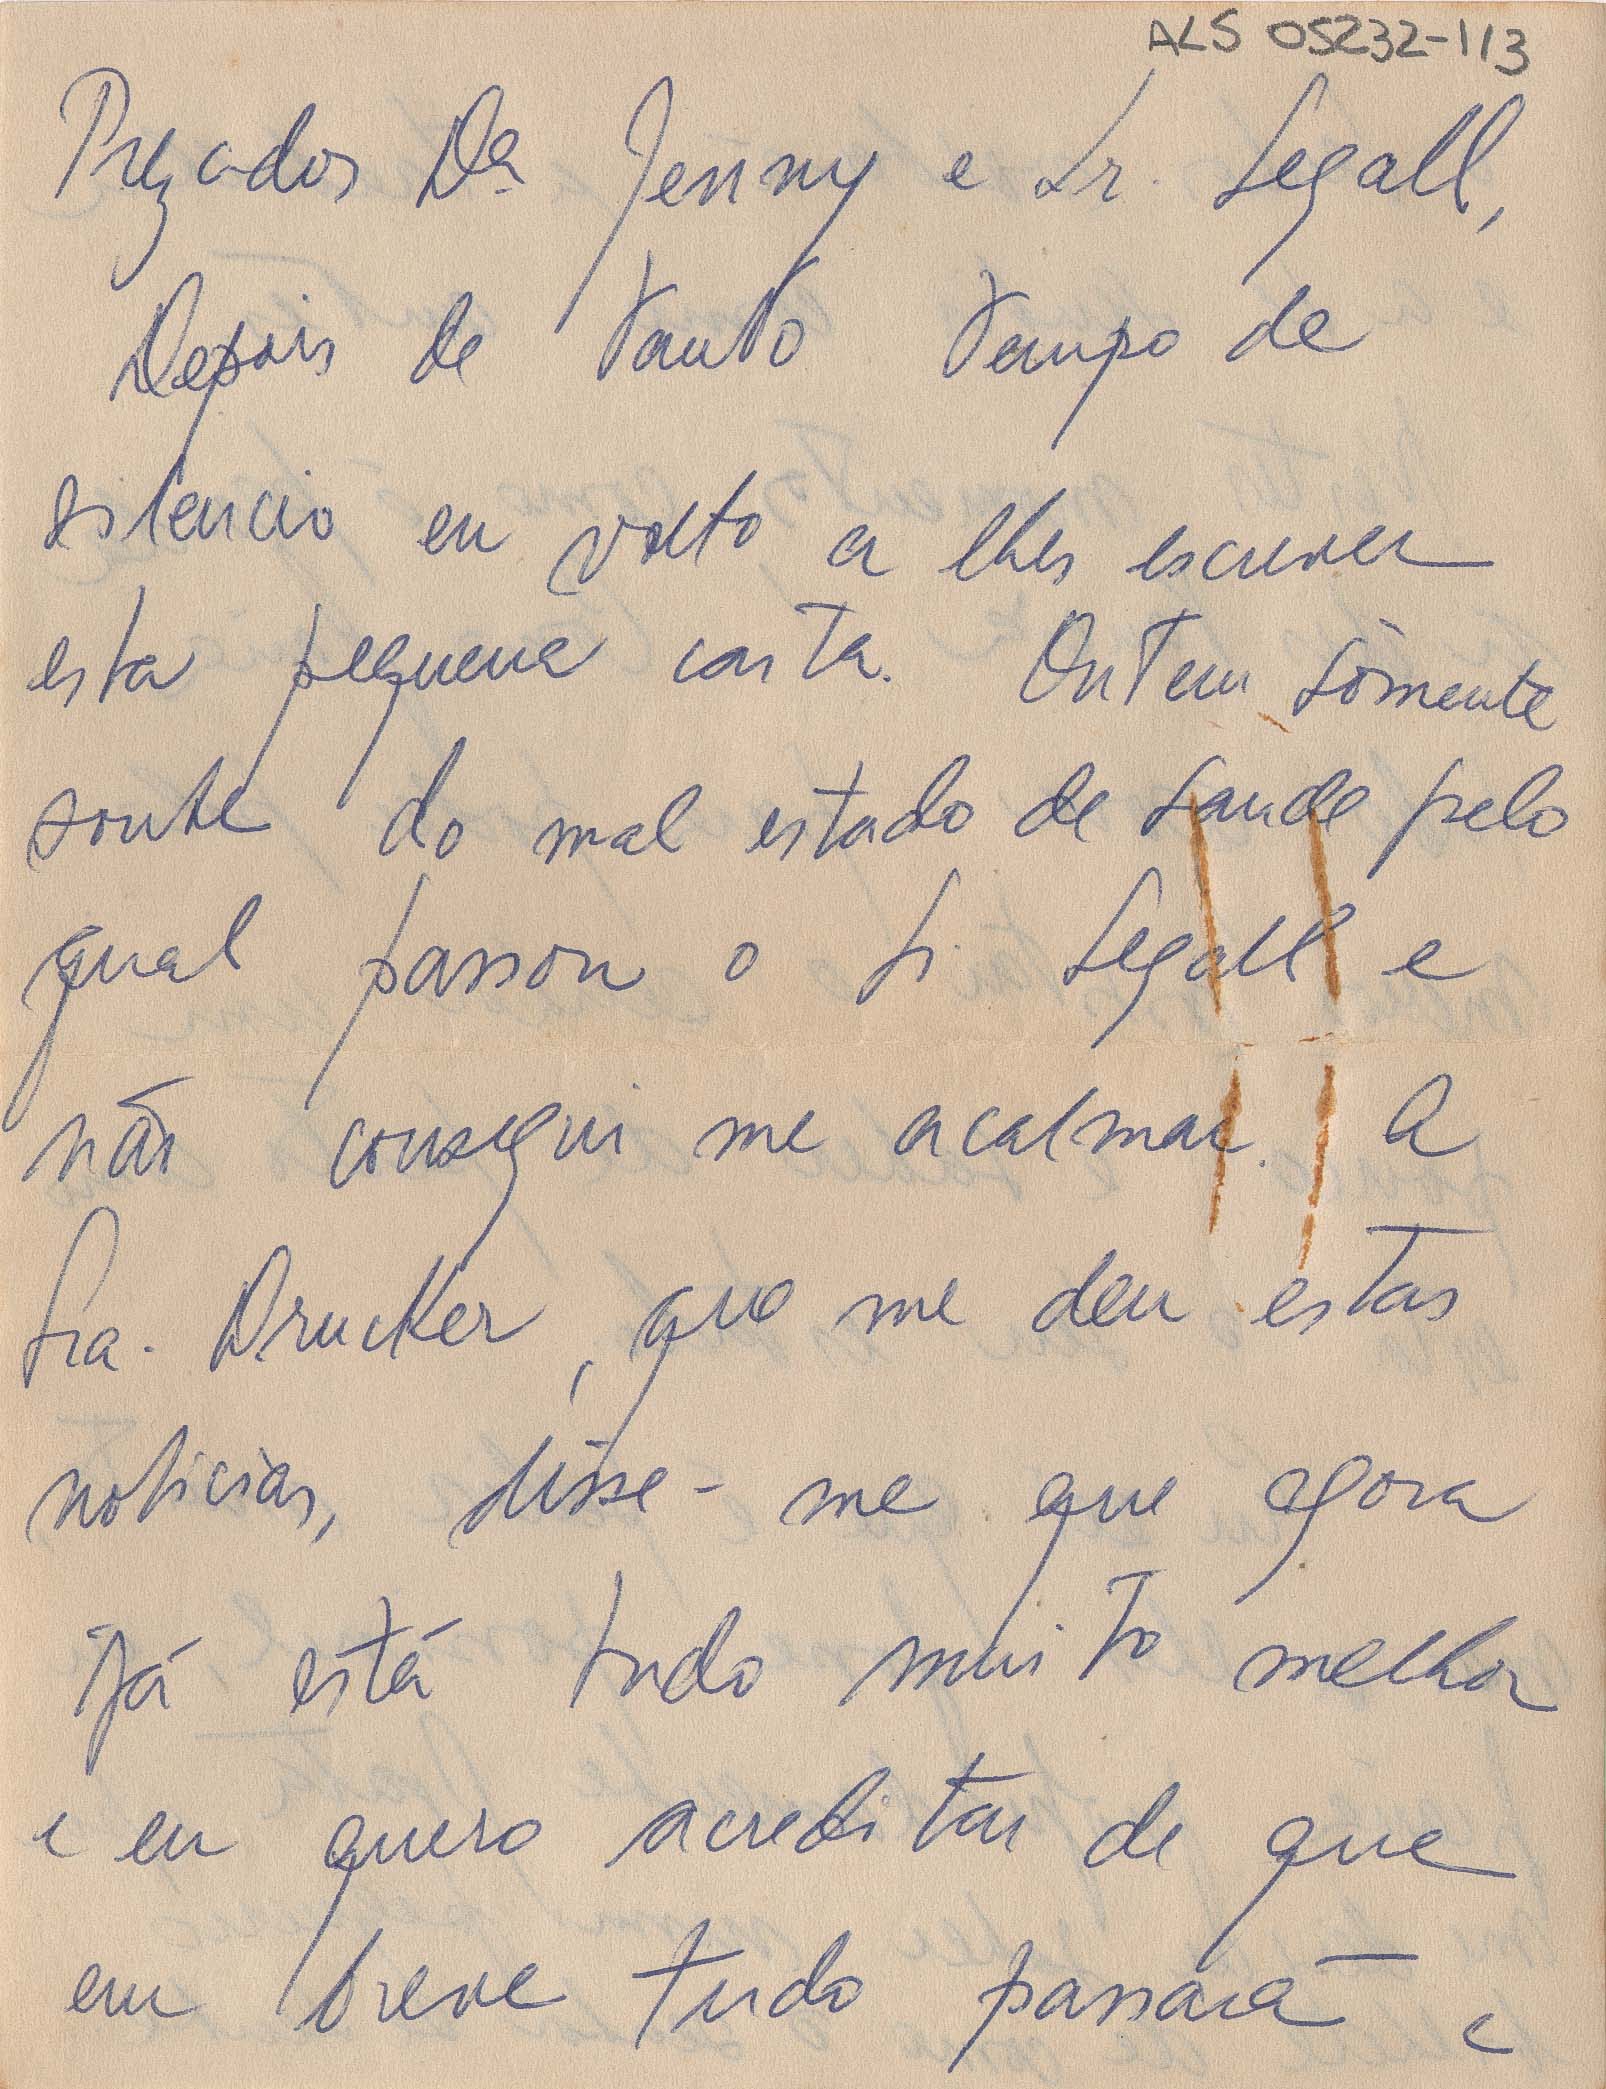 ALS 05232-113
Prezados Da. Jenny e Sr. Segall,
Depois de tanto tempo de
silencio eu volto a lhes escrever
esta pequena carta. Ontem sòmente
soube do mal estado de saude pelo
qual passou o Sr. Segall e
não consegui me acalmar. A
Sra. Drucker, que me deu estas
noticias, disse-me que agora
já está tudo muito melhor
e eu quero acreditar de que
em breve tudo passará e